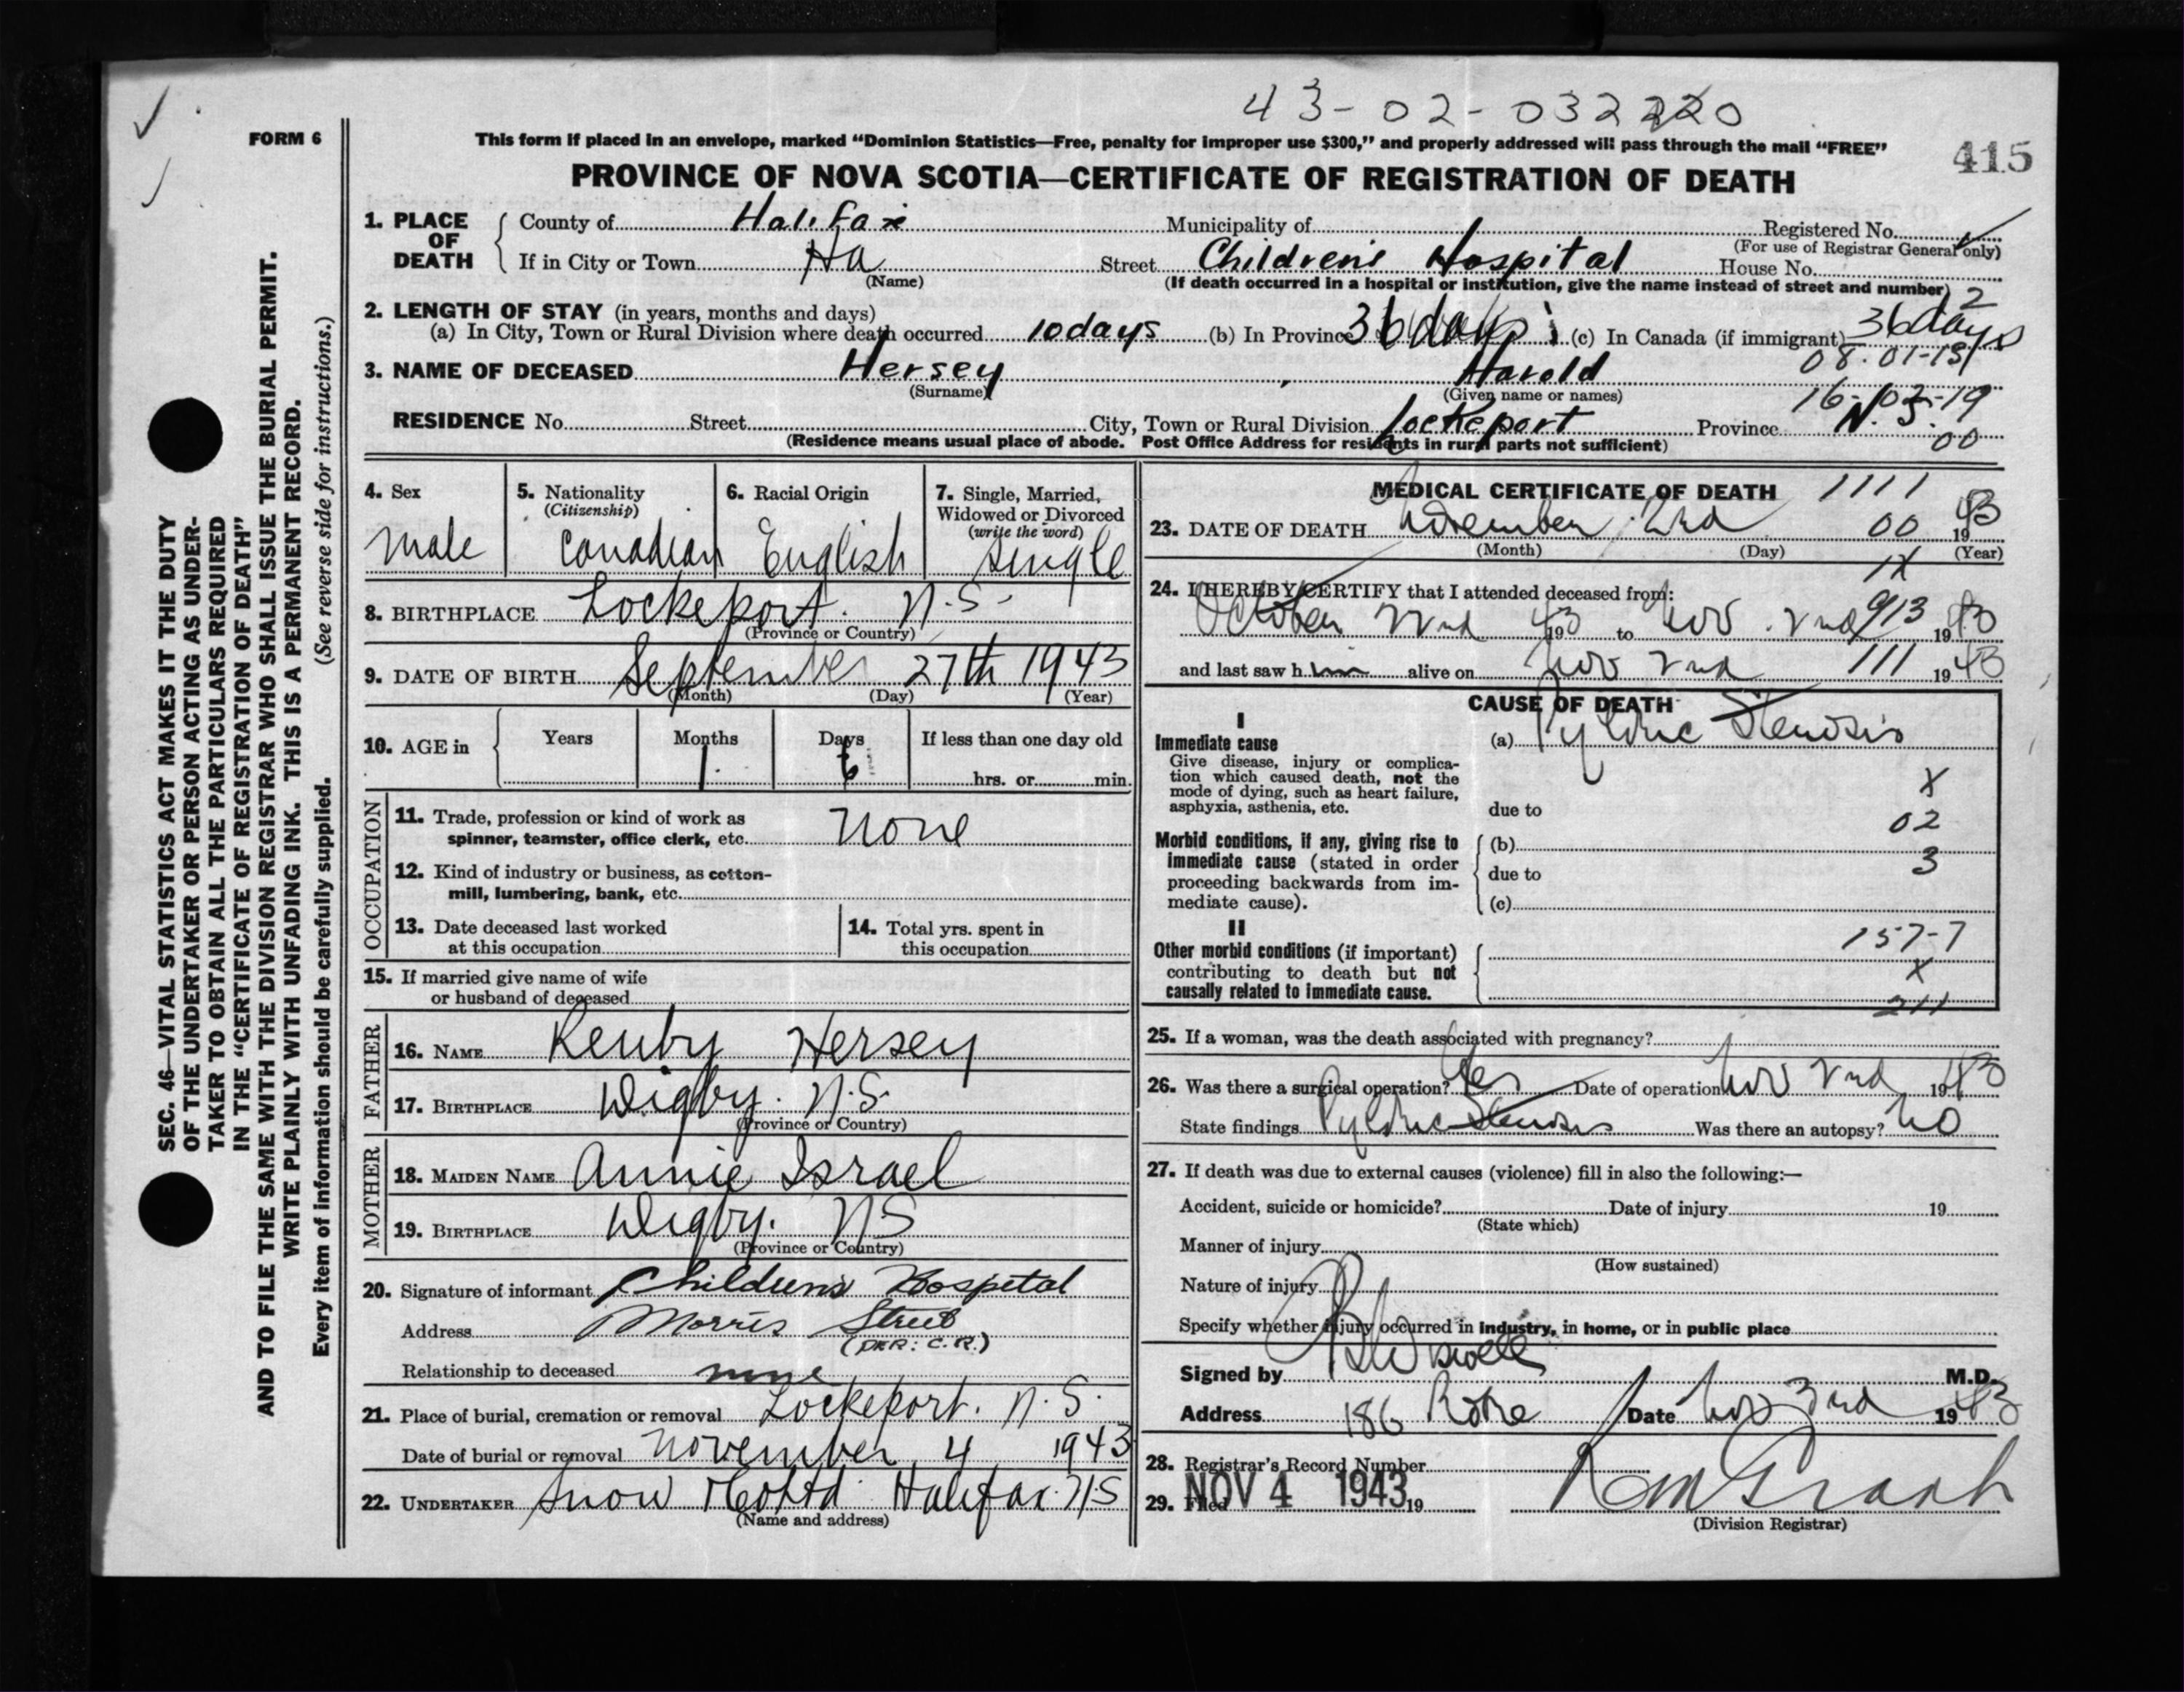 43-02-032220
FORM 6
This form if placed in an envelope, marked "Dominion Statistics—Free, penalty for improper use $300," and properly addressed will pass through the mail "FREE"
415
PROVINCE OF NOVA SCOTIA—CERTIFICATE OF REGISTRATION OF DEATH
1. PLACE OF DEATH
County of Halifax Municipality of Registered No.
(For use of Registrar General only)
If in City or Town Ha Street Children's Hospital House No.
(Name) (If death occurred in a hospital or institution, give the name instead of street and number)
2
2. LENGTH OF STAY (in years, months and days)
(a) In City, Town or Rural Division where death occurred 10 days (b) In Province 36 days (c) In Canada (if immigrant) 36 days
08-01-19
3. NAME OF DECEASED Hersey, Harold
(Surname) (Given name or names)
16-02-19
RESIDENCE No. Street City, Town or Rural Division Lockeport Province N.S.
00
(Residence means usual place of abode. Post Office Address for residents in rural parts not sufficient)
4. Sex
male
5. Nationality
(Citizenship)
Canadian
6. Racial Origin
English
7. Single, Married,
Widowed or Divorced
(write the word)
single
8. BIRTHPLACE Lockeport. N.S.
(Province or Country)
9. DATE OF BIRTH September 27th 1943
(Month) (Day) (Year)
10. AGE in Years Months Days If less than one day old
1 6 hrs. or min.
OCCUPATION
11. Trade, profession or kind of work as
spinner, teamster, office clerk, etc. None
12. Kind of industry or business, as cotton-
mill, lumbering, bank, etc.
13. Date deceased last worked
at this occupation
14. Total yrs. spent in
this occupation
15. If married give name of wife
or husband of deceased
FATHER
16. NAME Hersey
17. BIRTHPLACE Digby. N.S.
(Province or Country)
MOTHER
18. MAIDEN NAME Annie Israel
19. BIRTHPLACE Digby. NS
(Province or Country)
20. Signature of informant Children's Hospital
Address Morris Street
(PER: C.R.)
Relationship to deceased none
21. Place of burial, cremation or removal Lockeport. N.S.
Date of burial or removal November 4 1943
22. UNDERTAKER Snow & Co Ltd Halifax N S
(Name and address)
MEDICAL CERTIFICATE OF DEATH 1111
23. DATE OF DEATH November 2nd 00 1943
(Month) (Day) (Year)
1X
24. I HEREBY CERTIFY that I attended deceased from:
October 22nd 1943 to Nov. 2nd 913 1943
and last saw him alive on Nov 2nd 111 1943
CAUSE OF DEATH
I
Immediate cause
Give disease, injury or complica-
tion which caused death, not the
mode of dying, such as heart failure,
asphyxia, asthenia, etc.
(a) Pyloric Stenosis
X
due to
02
Morbid conditions, if any, giving rise to
immediate cause (stated in order
proceeding backwards from im-
mediate cause).
(b)
3
due to
(c)
II
157-7
Other morbid conditions (if important)
contributing to death but not
causally related to immediate cause.
X
211
25. If a woman, was the death associated with pregnancy?
26. Was there a surgical operation? Yes Date of operation Nov 2nd 1943
State findings Pyloric Stenosis Was there an autopsy? No
27. If death was due to external causes (violence) fill in also the following:—
Accident, suicide or homicide? Date of injury 19
(State which)
Manner of injury
(How sustained)
Nature of injury
Specify whether injury occurred in industry, in home, or in public place
Signed by M.D.
Address 186 Date Nov 3rd 1943
28. Registrar's Record Number
29. Filed NOV 4 1943 19
(Division Registrar)
SEC. 46—VITAL STATISTICS ACT MAKES IT THE DUTY
OF THE UNDERTAKER OR PERSON ACTING AS UNDER-
TAKER TO OBTAIN ALL THE PARTICULARS REQUIRED
IN THE "CERTIFICATE OF REGISTRATION OF DEATH"
AND TO FILE THE SAME WITH THE DIVISION REGISTRAR WHO SHALL ISSUE THE BURIAL PERMIT.
WRITE PLAINLY WITH UNFADING INK. THIS IS A PERMANENT RECORD.
Every item of information should be carefully supplied. (See reverse side for instructions.)